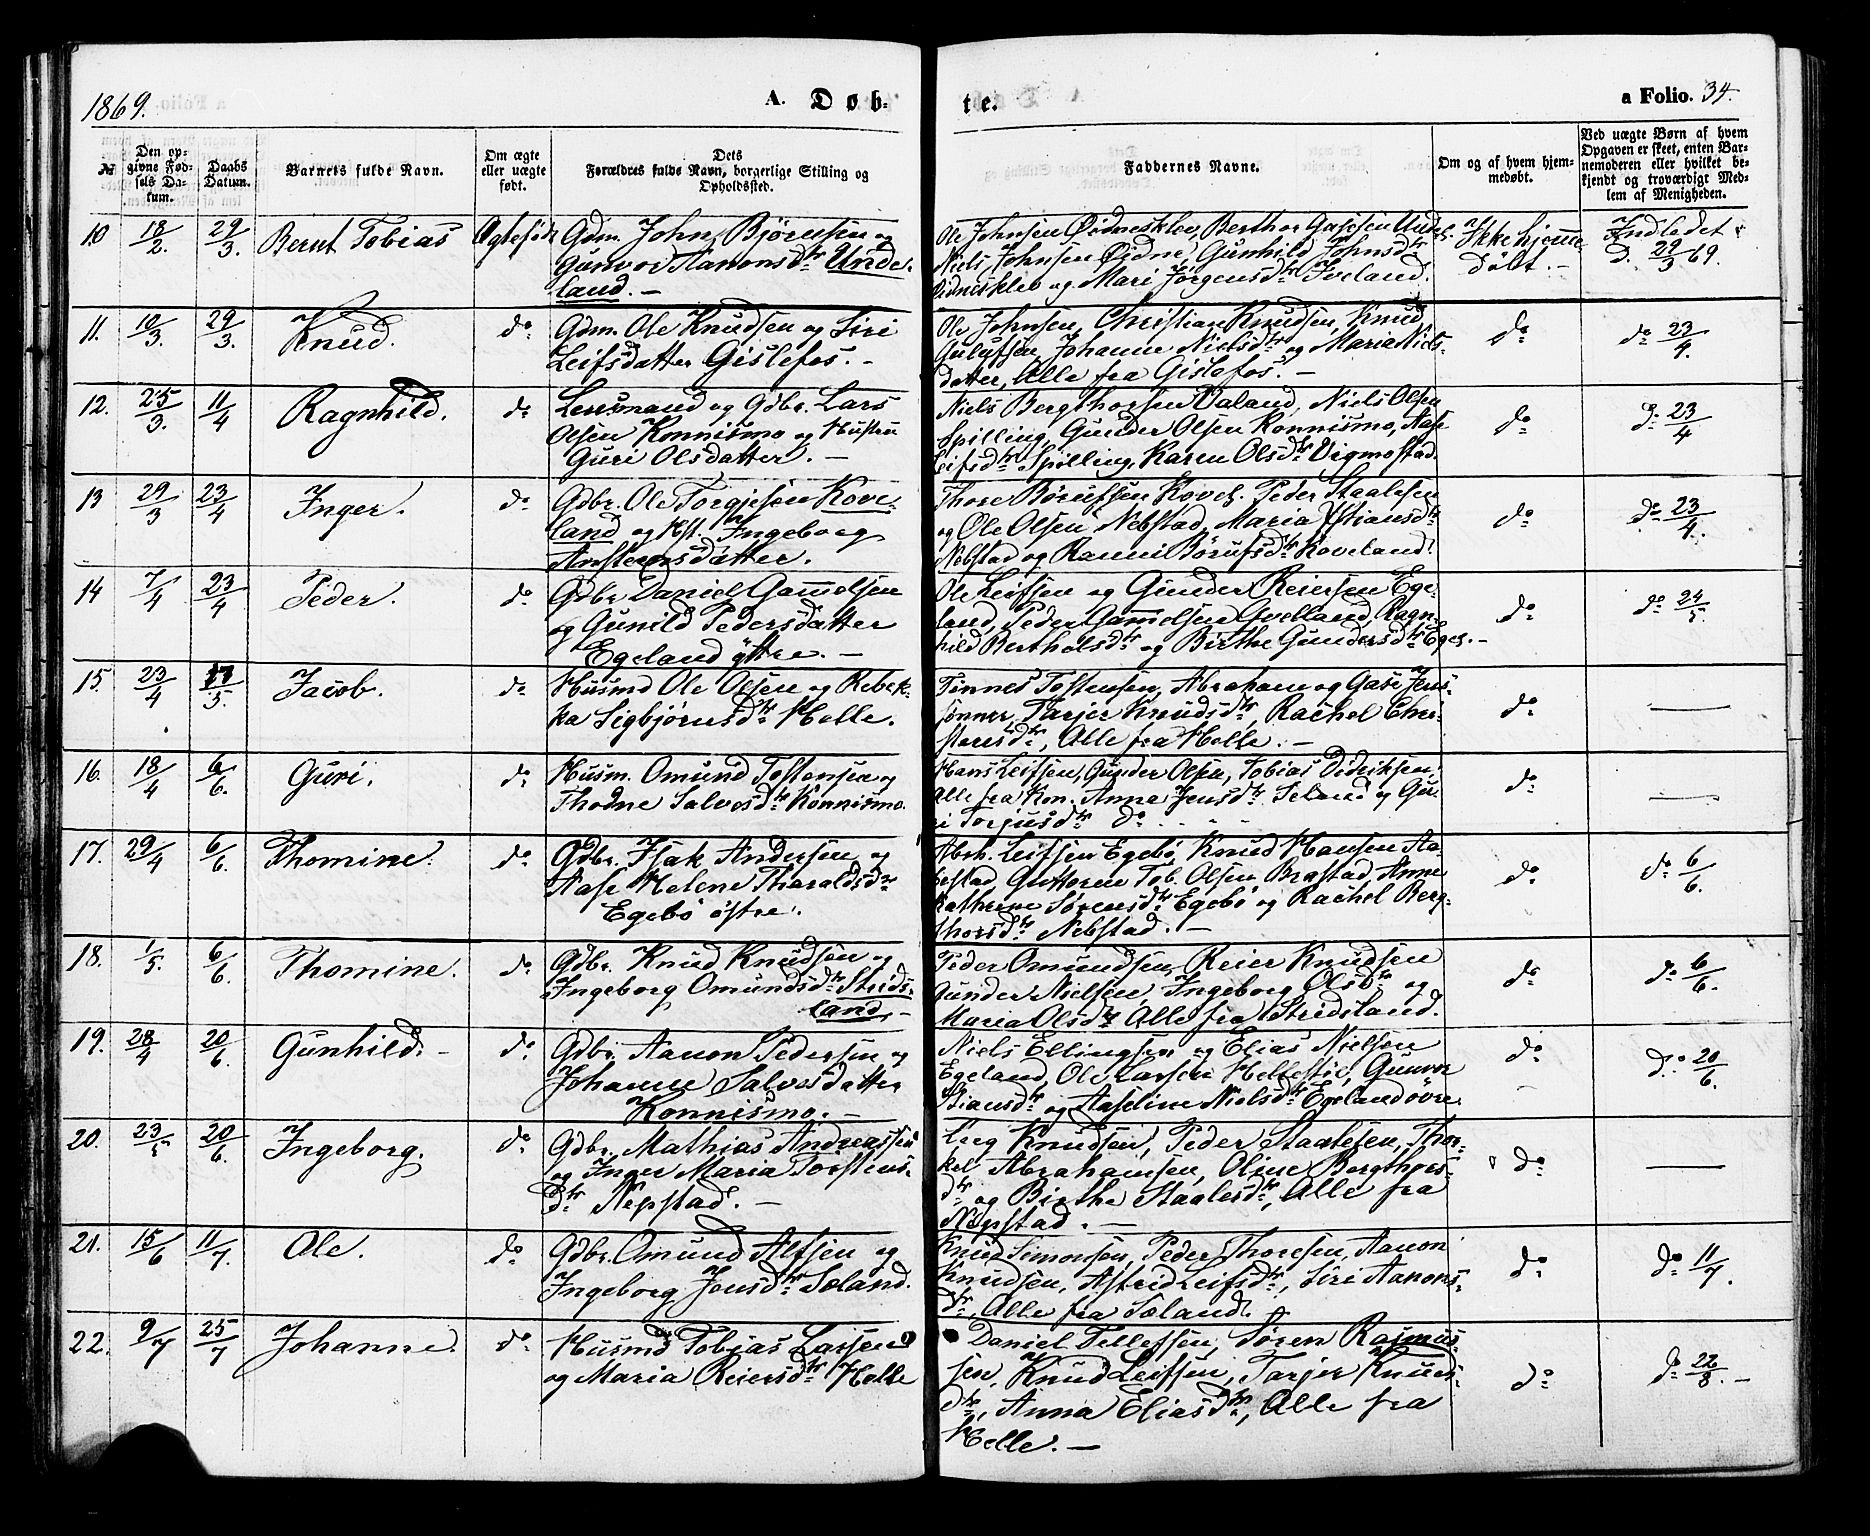 1869.
A. Døb-
te.
a Folio. 34.
№
Den op-
givne Fød-
sels Da-
tum.
Daabs
Datum.
Barnets fulde Navn.
Om ægte
eller uægte
født.
Dets
Forældres fulde Navn, borgerlige Stilling og
Opholdssted.
Faddernes Navne.
Om og af hvem hjem-
medøbt.
Ved uægte Børn af hvem
Opgaven er skeet, enten Bar-
nemoderen eller hvilket be-
kjendt og troværdigt Med-
lem af Menigheden.
10 18/2. 29/3. Bernt Tobias Ægtefødt Gdm. John Bjørnsen og
Gunvor Aanonsdtr Unde-
land. -
Ole Johnsen Øidnesklev, Berthor Gassesen Undel.
Niels Johnsen Øidne, Gunhild Johnsdtr
Øidnesklev og Mari Jørgensdtr Iveland.
Ikke hjemme
døbt. -
Indledet
d. 29/3 69.
11. 10/3. 29/3. Knud. do Gdm. Ole Knudsen og Siri
Leifsdatter Gislefos. -
Ole Johnsen, Christian Knudsen, Knud
Gulufsen, Johanne Nielsdtr og Maria Niels-
datter, Alle fra Gislefos. -
do
do 23/4.
12. 25/3. 11/4 Ragnhild. do Lensmand og Gdbr. Lars
Olsen Konnismo og Hustru
Guri Olsdatter. -
Niels Bergthorsen Valand, Niels Olsen
Spilling, Gunder Olsen Konnismo, Aase
Leifsdtr Spilling, Karen Olsdtr Vigmostad.
do
do 23/4
13 29/3 23/4 Inger. do Gdbr. Ole Torgjesen Kove-
land og Hst. Ingeborg
Arnsteensdatter.
Thore Børufsen Kovel. Peder Staalesen
og Ole Olsen Nebstad, Maria Stiansdtr
Nebstad og Ranni Børufsdtr Koveland.
do
do 23/4.
14 7/4 23/4 Peder. do Gdbr. Daniel Gamelsen
og Gunild Pedersdatter
Egeland ÿttre. -
Ole Leifsen og Gunder Reiersen Ege-
land, Peder Gamelsen Qvelland, Ragn-
hild Bertholsdtr og Birthe Gundersdtr Egel. -
do
do 24/5.
15. 23/4 17/5. Jacob. do Husmd Ole Olsen og Rebek-
ka Sigbjørnsdtr Helle.
Tønnes Tostensen, Abraham og Gase Jens-
sønner, Tarjer Knudsdtr, Rachel Chri-
stensdtr, Alle fra Helle. -
do
16. 18/4 6/6. Guri. do Husm. Omund Tostensen og
Thodne Salvesdtr Konnismo.
Hans Leifsen, Gunder Olsen, Tobias Didriksen,
Alle fra Kon. Anna Jensdtr Seland og Gu-
ri Torjusdtr do
do
17. 29/4 6/6. Thomine. do Gdbr. Isak Andersen og
Aase Helene Tharaldsdtr
Egebö östre.
Abrh. Leifsen Egebø, Knud Hansen Aa-
bestad, Guttorm Tob. Olsen Brastad, Anne
Kathrine Sørensdtr Egebö og Rachel Berg-
thorsdtr Nebstad. -
do
do 6/6.
18. 1/5. 6/6 Thomine. do Gdbr. Knud Knudsen og
Ingeborg Omundsdtr Strids-
land. -
Peder Omundsen, Reier Knudsen
Gunder Nielsen, Ingeborg Olsdtr og
Maria Olsdtr Alle fra Stridsland.
do
do 6/6.
19. 28/4 20/6. Gunhild. - do Gdbr. Aanon Pedersen og
Johanne Salvesdatter
Konnismo. -
Niels Ellingsen og Elias Nielsen
Egeland, Ole Larsen Hellestie, Gunvor
Stiansdtr og Aaseline Nielsdtr Egeland øvre.
do
do 20/6.
20. 23/5 20/6. Ingeborg. do Gdbr. Mathias Andreassen
og Inger Maria Torstens-
dtr Nepstad. -
Knudsen, Peder Staalesen, Thor-
kel Abrahamsen, Oline Bergthors-
dtr og Birthe Staalesdtr, Alle fra
Nepstad. -
do
21. 15/6 11/7. Ole. do Gdbr. Omund Alfsen og
Ingeborg Jensdtr Sæland.
Knud Simonsen, Peder Thoresen, Aanon
Knudsen, Astrid Leifsdtr, Siri Aanons-
dtr, Alle fra Sæland.
do
do 11/7.
22. 9/7 25/7 Johanne. do Husmd Tobias Larsen
og Maria Reiersdtr Helle
Daniel Tellefsen, Søren Rasmus-
sen, Knud Leifsen, Tarjer Knuds-
dtr, Anna Eliasdtr, Alle fra
Helle. -
do
do 22/8. -